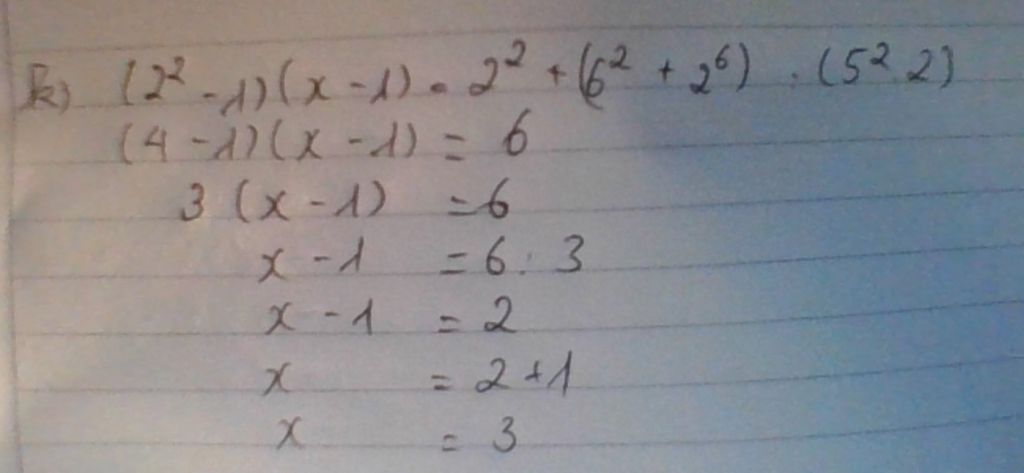 k) (2² - 1)(x - 1) = 2² + (6² + 2⁶) : (5² 2)
(4 - 1)(x - 1) = 6
3 (x - 1) = 6
x - 1 = 6 : 3
x - 1 = 2
x = 2 + 1
x = 3